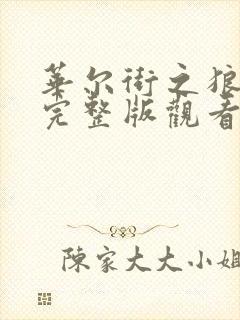 華尔街之狼
完整版觀看
陳家大大小姐